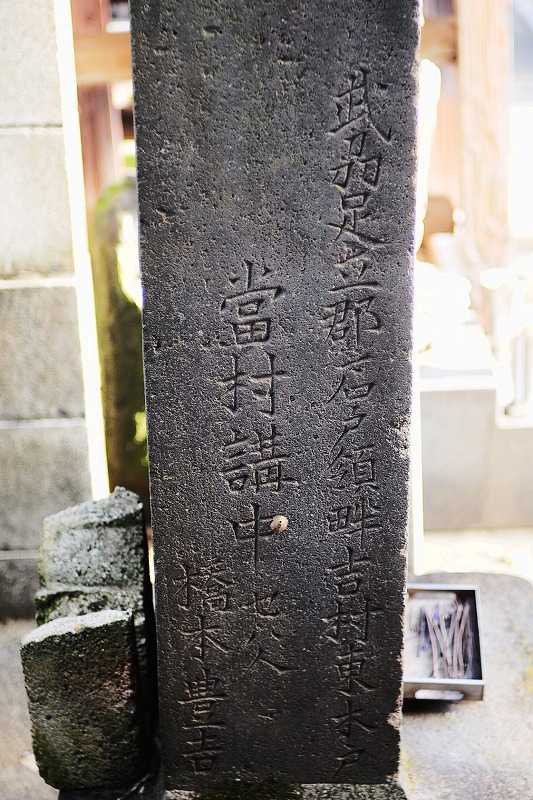 武刕足立郡石戸須畔吉村東木戸
當村講中七八人
橋本豊吉